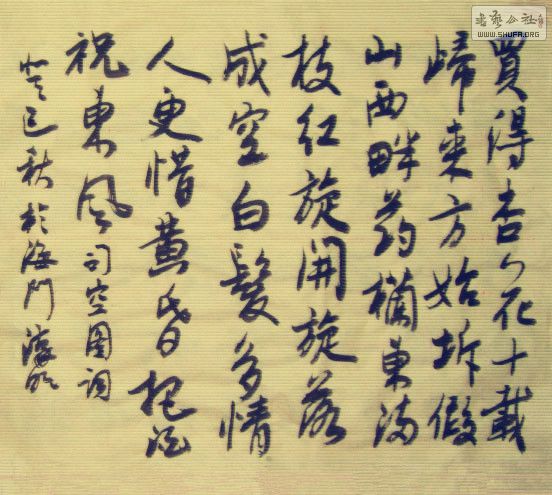 書藝公社
WWW.SHUFA.ORG
買得杏花十載
歸來方始坼假
山西畔药欄東滿
枝红旋開旋落
成空白髮多情
人更惜黄昏把酒
祝東風司空图词
癸巳秋於海門